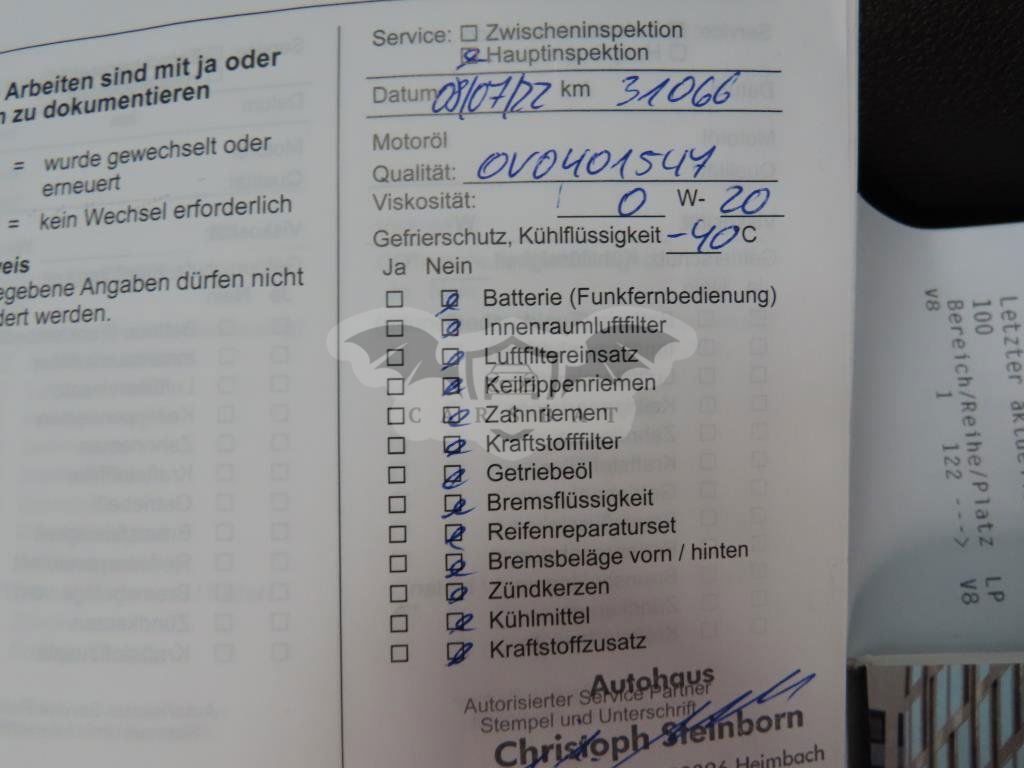 Arbeiten sind mit ja oder
zu dokumentieren
= wurde gewechselt oder
erneuert
= kein Wechsel erforderlich
egebene Angaben dürfen nicht
dert werden.
Service: Zwischeninspektion
Hauptinspektion
Datum 08/07/22 km 31066
Motoröl
Qualität: OVO401547
Viskosität: 0 W- 20
Gefrierschutz, Kühlflüssigkeit -40 C
Ja Nein
Batterie (Funkfernbedienung)
Innenraumluftfilter
Luftfiltereinsatz
Keilrippenriemen
Zahnriemen
Kraftstofffilter
Getriebeöl
Bremsflüssigkeit
Reifenreparaturset
Bremsbeläge vorn / hinten
Zündkerzen
Kühlmittel
Kraftstoffzusatz
Autohaus
Autorisierter Service Partner
Stempel und Unterschrift
Christoph Steinborn
Heimbach
Letzter
100 LP
Bereich/Reihe/Platz
1 122 ---> V8
V8